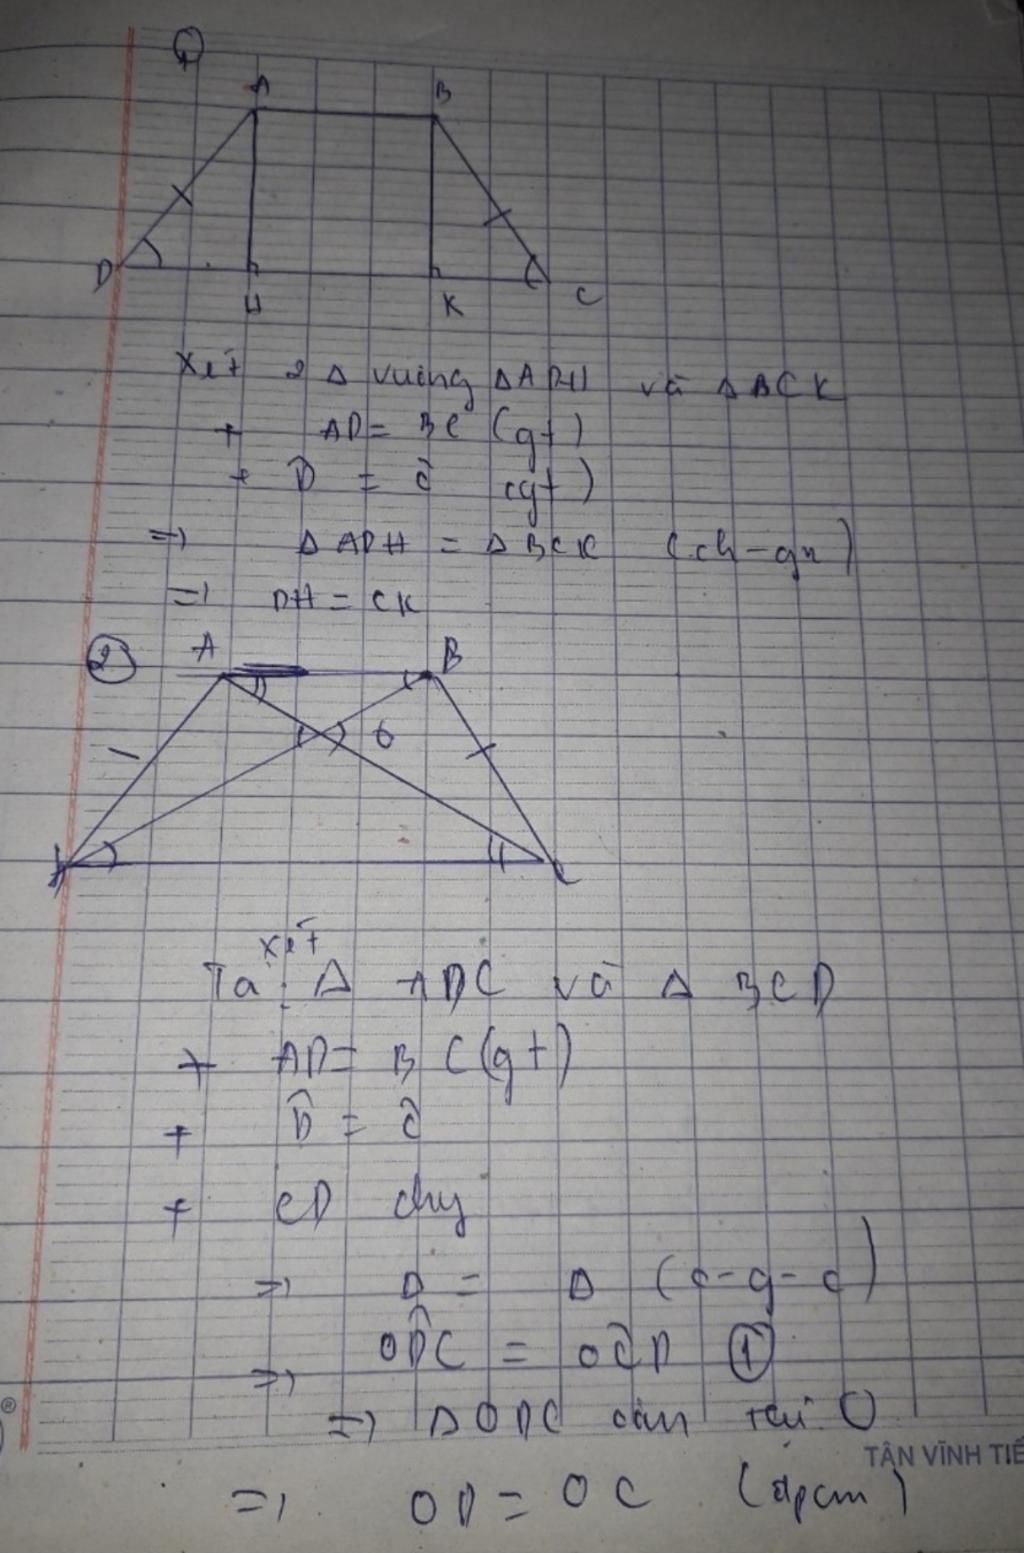 1
A B
D H K C
Xét 2 Δ vuông ΔADH và ΔBCK
+ AD = BC (gt)
+ D̂ = Ĉ (gt)
=> ΔADH = ΔBCK (ch-gn)
=> DH = CK
2 A B
O
D C
xét
Ta: Δ ADC và Δ BCD
+ AD = BC (gt)
+ D̂ = Ĉ
+ CD chg
=> Δ = Δ (c-g-c)
=> OD̂C = OĈD 1
=> ΔODC cân tại O
®
TÂN VĨNH TIẾ
=> OD = OC (đpcm)